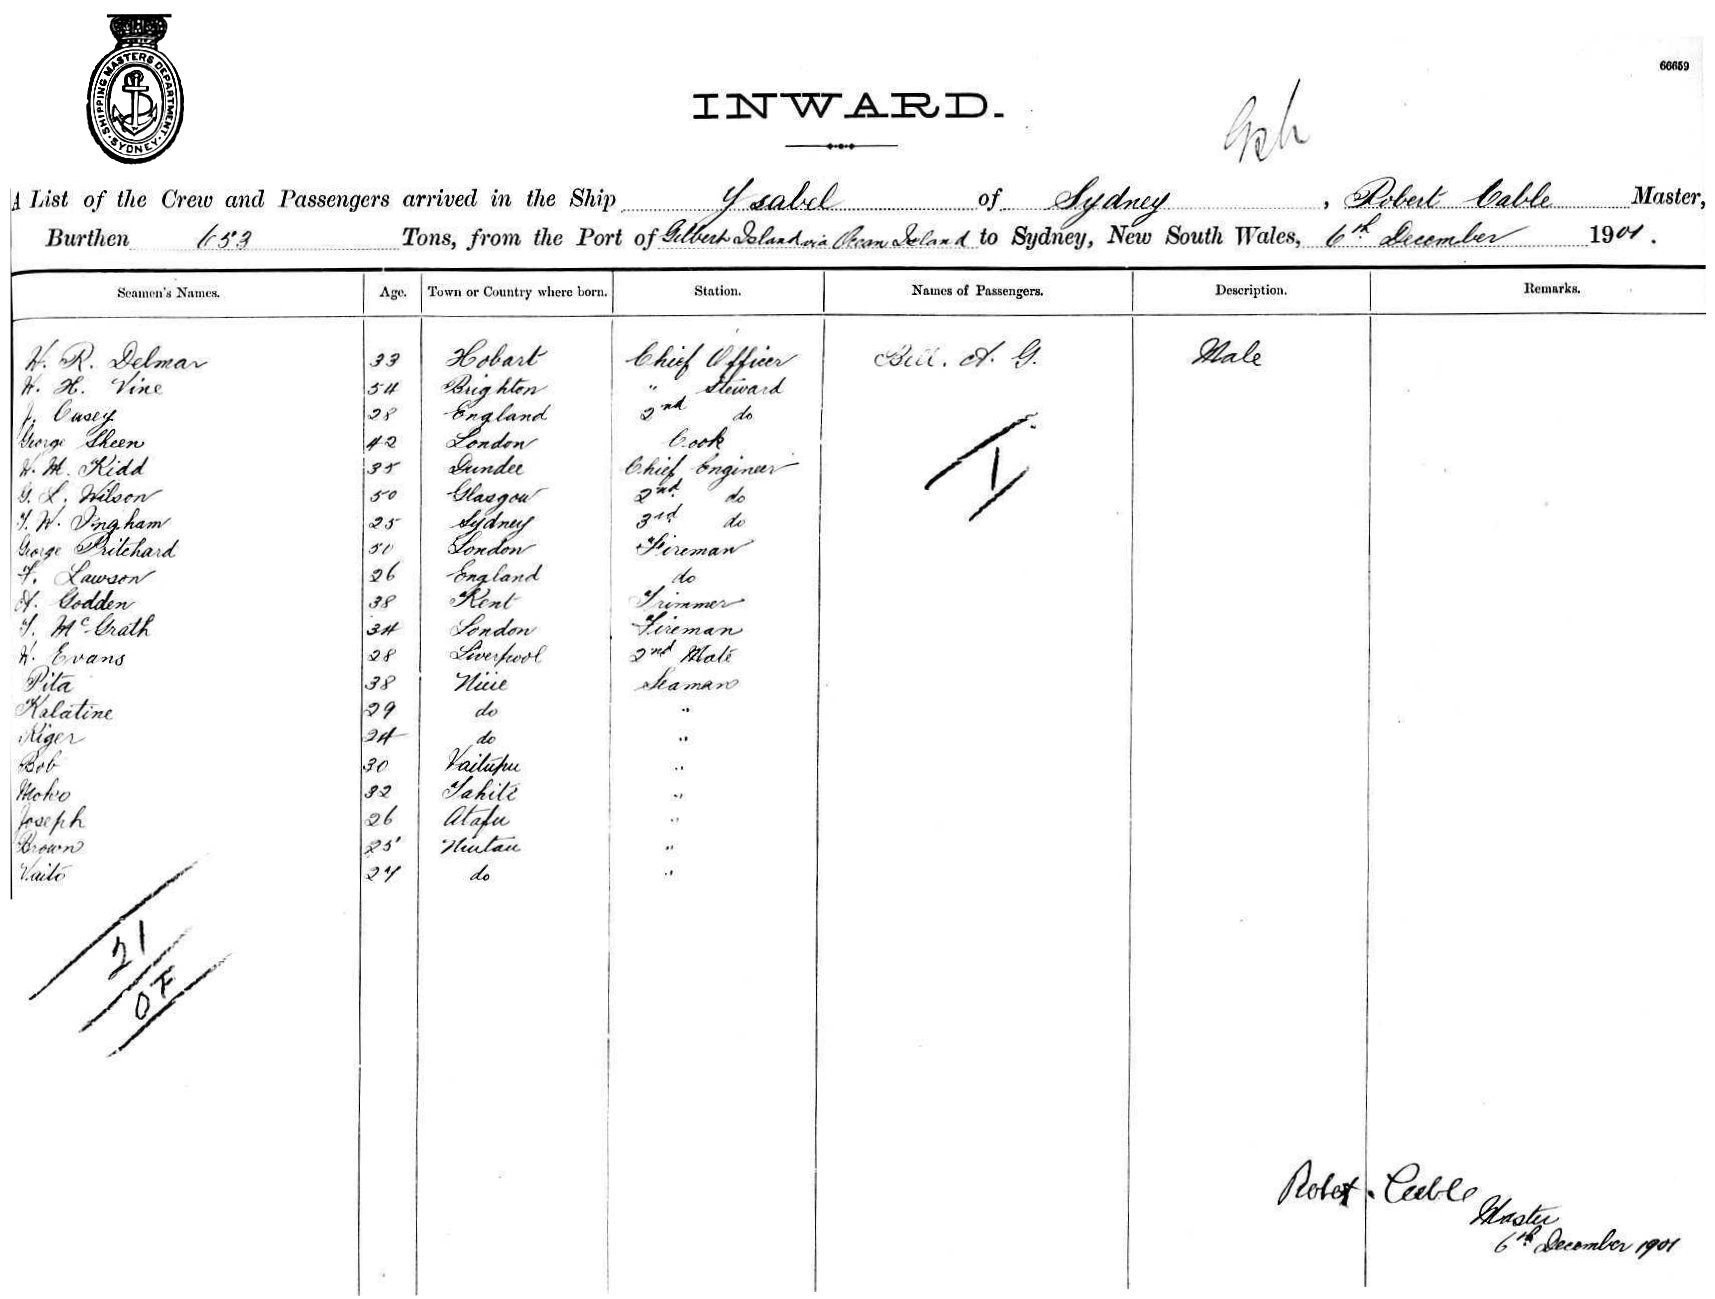 SHIPPING MASTERS DEPARTMENT · SYDNEY ·
66659
INWARD.
A List of the Crew and Passengers arrived in the Ship Ysabel of Sydney, Robert Cable Master,
Burthen 653 Tons, from the Port of Gilbert Island via Ocean Island to Sydney, New South Wales, 6th December 1901.
Seamen's Names. Age. Town or Country where born. Station. Names of Passengers. Description. Remarks.
W. R. Delmar 33 Hobart Chief Officer Bell. A. G. Male
W. H. Vine 54 Brighton " Steward
J. Casey 28 England 2nd do
George Sheen 42 London Cook
W. M. Kidd 35 Dundee Chief Engineer
G. L. Wilson 50 Glasgow 2nd do
T. W. Ingham 25 Sydney 3rd do
George Pritchard 50 London Fireman
F. Lawson 26 England do
A. Godden 38 Kent Trimmer
T. McGrath 34 London Fireman
W. Evans 28 Liverpool 2nd Mate
Pita 38 Niue Seaman
Kalatine 29 do "
Kiger 24 do "
Bob 30 Vaitupu "
Moko 32 Tahiti "
Joseph 26 Atafu "
Brown 25 Niutau "
Vaito 27 do "
1
21
OF
Robert Cable
Master
6th December 1901